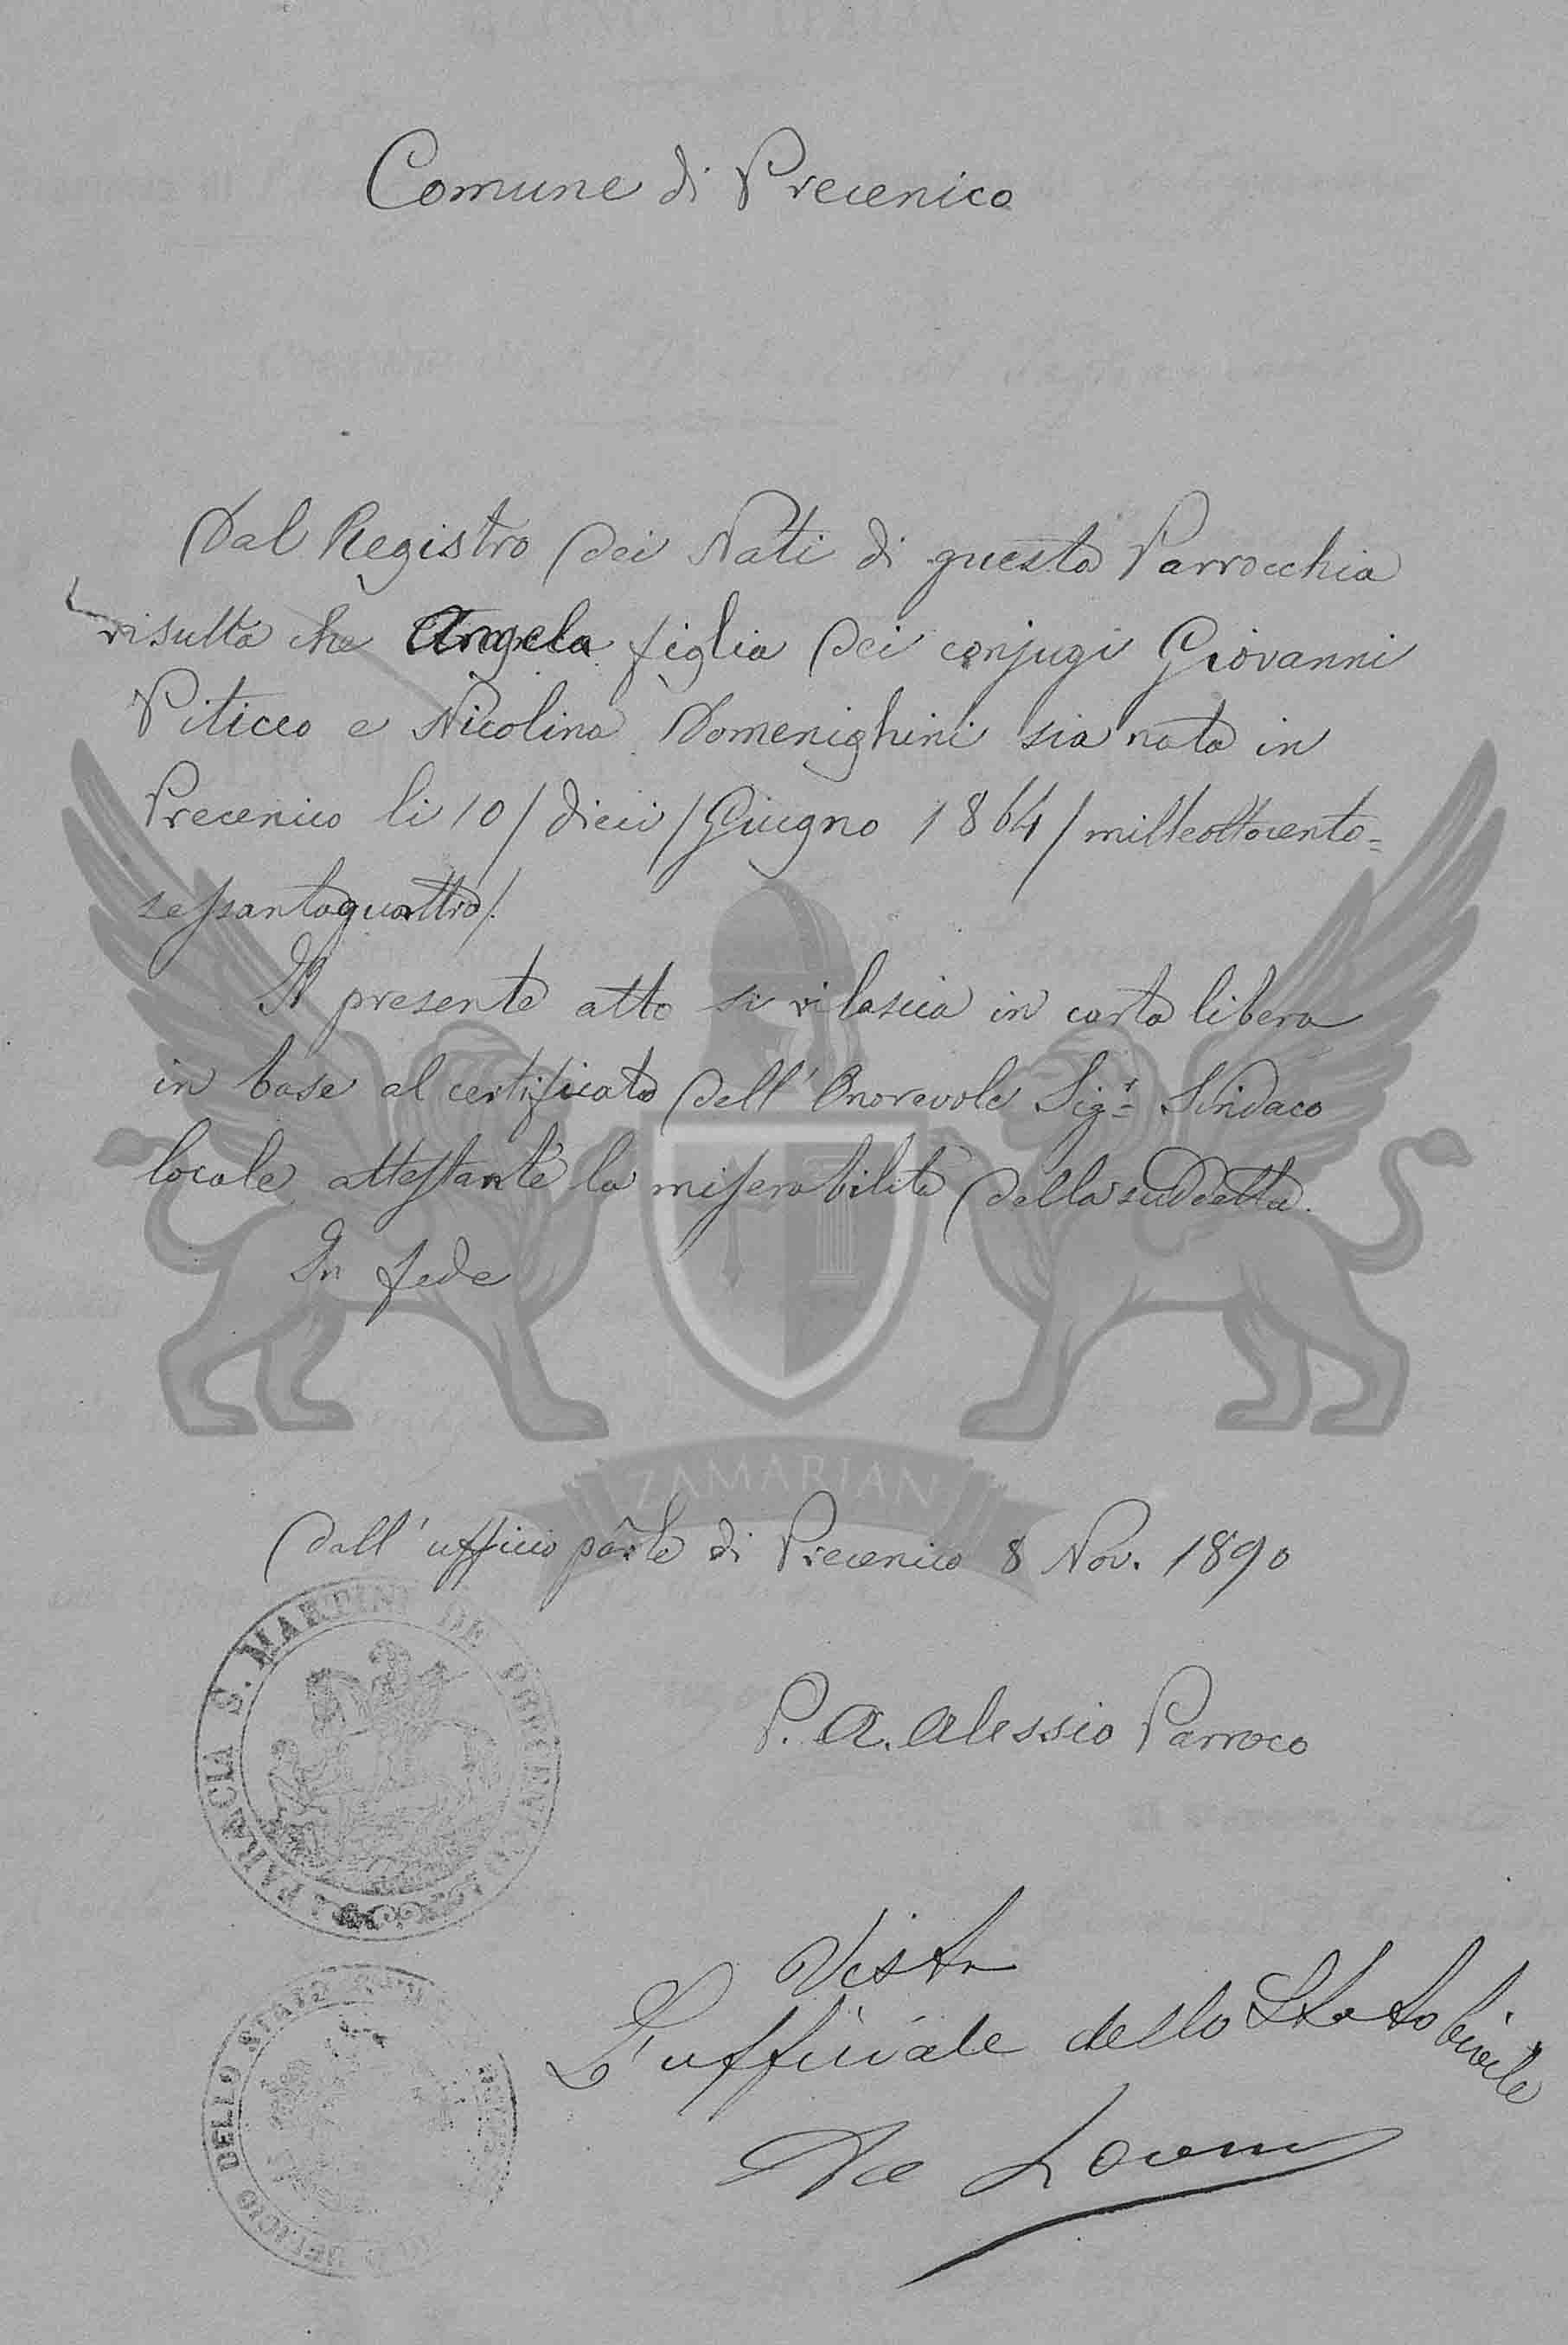 Comune di Precenico
Dal Registro dei Nati di questa Parrocchia
risulta che Angela figlia dei conjugi Giovanni
Piticco e Nicolina Domenighini sia nata in
Precenico li 10 / dieci / Giugno 1864 / milleottocento=
sessantaquattro/.
Il presente atto si rilascia in carta libera
in base al certificato dell' Onorevole Sig.r Sindaco
locale attestante la miserabilità della suddetta.
In fede
ZAMARIAN
Dall' ufficio parle di Precenico 8 Nov. 1890
PARÆCIA S. MARTINI DE PRECENICO
P. A. Alessio Parroco
Visto
L' ufficiale dello Stato Civile
UFFICIO DELLO STATO